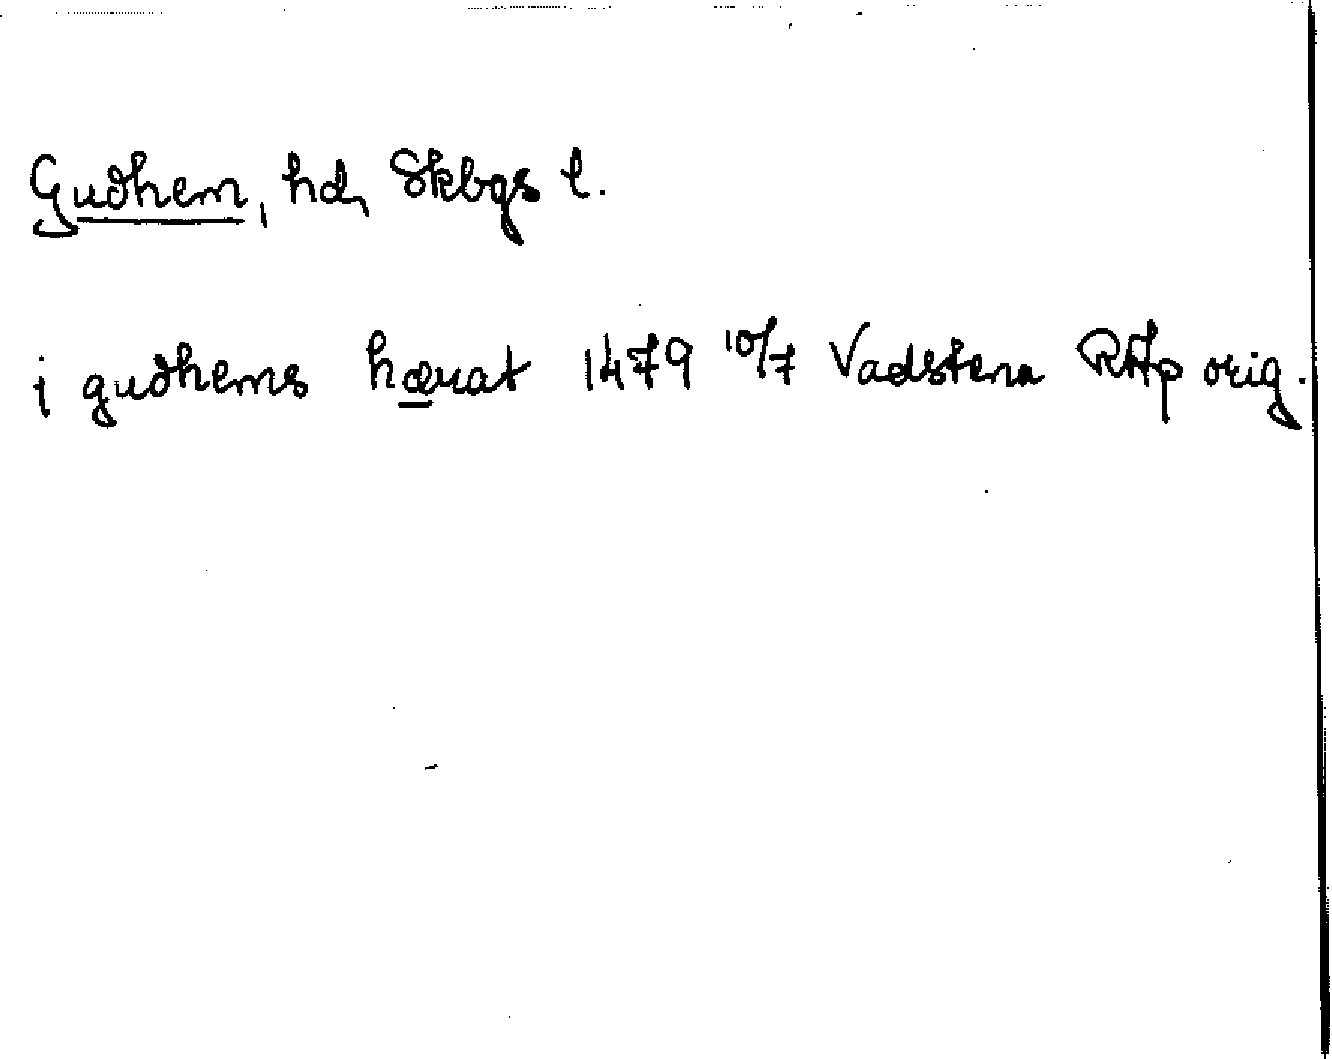 Gudhem, hd, Skbgs l.
i gudhems hærat 1479 10/7 Vadstena RAp orig.